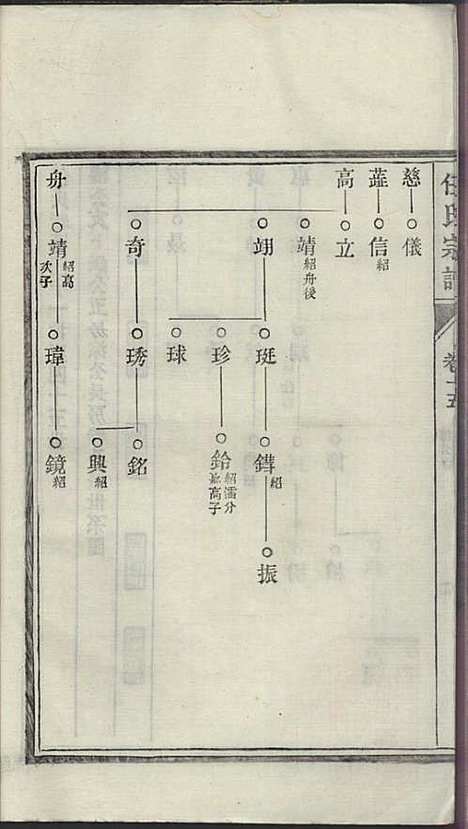 任氏宗譜
卷十五
慈 儀
蓝 信紹
高 立
靖紹舟後
翊 珽 鏵紹 振
珍 鈴紹濡分派高子
球
奇 琇 銘
興紹
舟 靖紹高次子 瑋 鏡紹